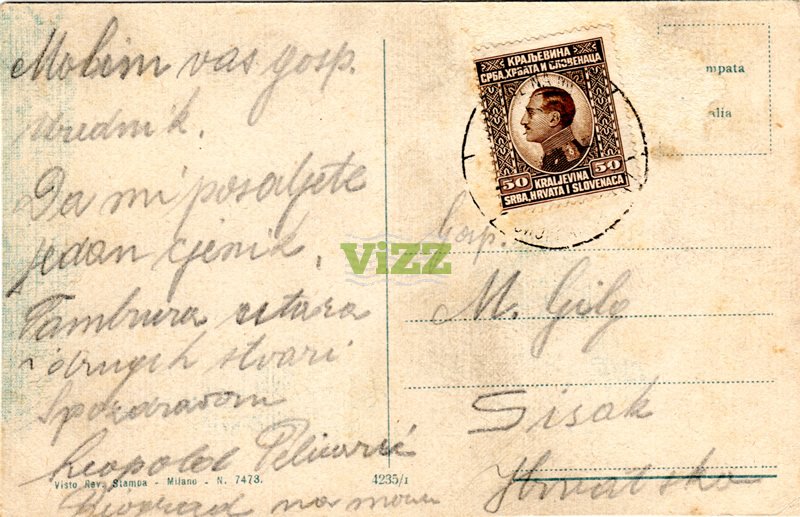 Molim vas gosp.
urednik.
Da mi posaljete
jedan cjenik.
Tambura citara
i drugih stvari
S pozdravom
Leopold Pelicarić
Biograd na moru
Visto Rev. Stampa - Milano - N. 7473.
4235/1
КРАЉЕВИНА
СРБА, ХРВАТА И СЛОВЕНАЦА
50 50
KRALJEVINA
SRBA, HRVATA I SLOVENACA
mpata
alia
Gosp.
M. Gilg
Sisak
Hrvatska
VIZZ